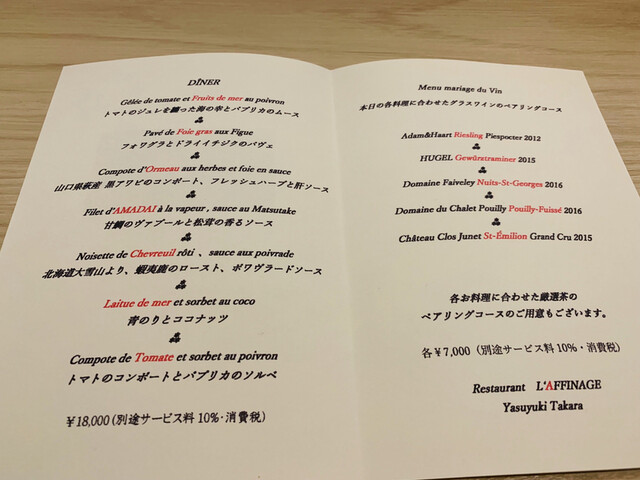 DÎNER
Gêlée de tomate et Fruits de mer au poivron
トマトのジュレを纏った海の幸とパプリカのムース
Pavé de Foie gras aux Figue
フォワグラとドライイチジクのパヴェ
Compote d'Ormeau aux herbes et foie en sauce
山口県萩産 黒アワビのコンポート、フレッシュハーブと肝ソース
Filet d'AMADAI à la vapeur , sauce au Matsutake
甘鯛のヴァプールと松茸の香るソース
Noisette de Chevreuil rôti 、sauce aux poivrade
北海道大雪山より、蝦夷鹿のロースト、ポワヴラードソース
Laitue de mer et sorbet au coco
青のりとココナッツ
Compote de Tomate et sorbet au poivron
トマトのコンポートとパプリカのソルベ
￥18,000（別途サービス料 10%・消費税）
Menu mariage du Vin
本日の各料理に合わせたグラスワインのペアリングコース
Adam&Haart Riesling Piespocter 2012
HUGEL Gewürztraminer 2015
Domaine Faiveley Nuits-St-Georges 2016
Domaine du Chalet Pouilly Pouilly-Fuissé 2016
Château Clos Junet St-Émilion Grand Cru 2015
各お料理に合わせた厳選茶の
ペアリングコースのご用意もございます。
各￥7,000（別途サービス料 10%・消費税）
Restaurant L'AFFINAGE
Yasuyuki Takara